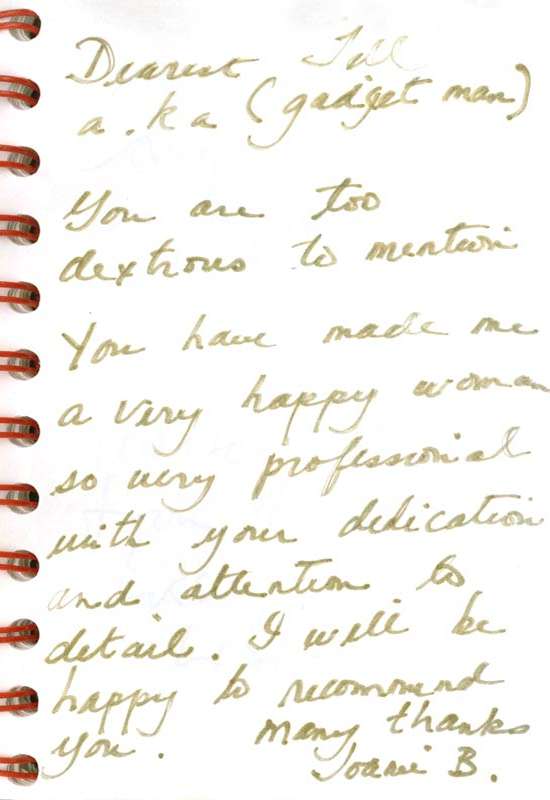 Dearest
a.k.a (gadget man)
You are too
dextrous to mention
You have made me
a very happy woman
so very professional
with your dedication
and attention to
detail. I will be
happy to recommend
you. many thanks
Joanie B.